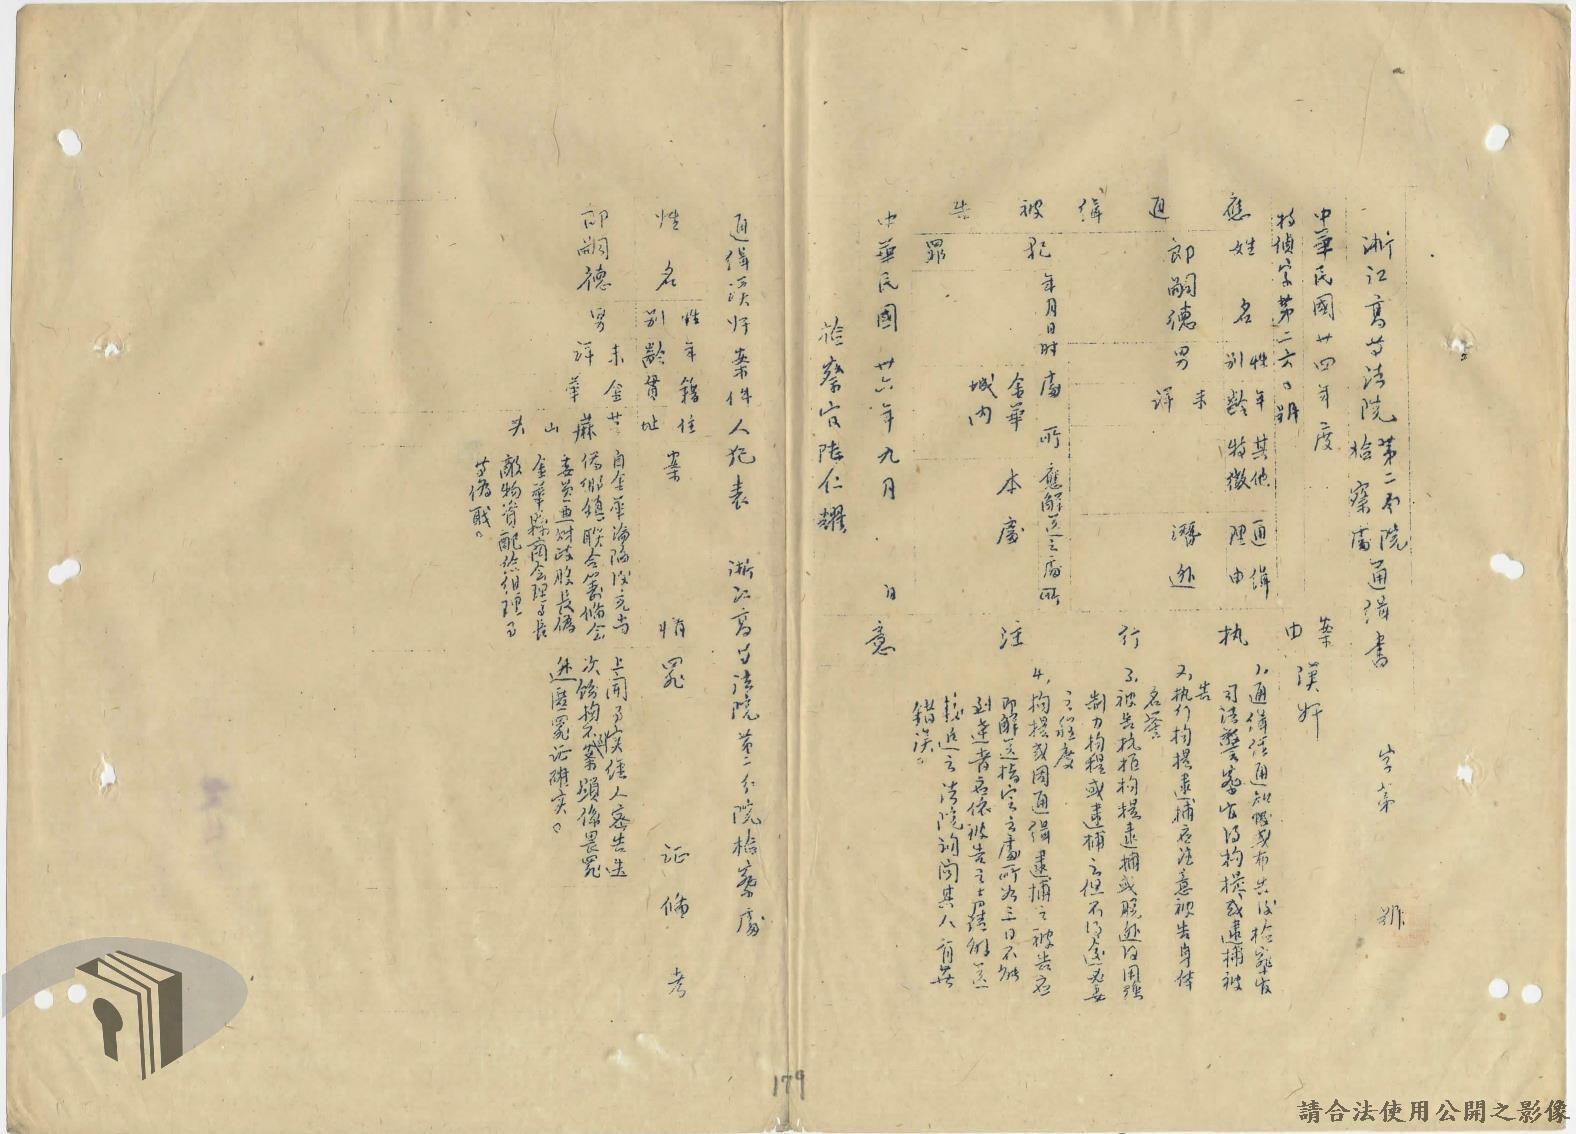 浙江高等法院第二分院檢察處通緝書 字第 號
中華民國卅四年度
特偵字第二六〇號
案由 漢奸
應通緝被告
姓名 性別 年齡 其他特徵 通緝理由
郎嗣德 男 未詳 潛逃
犯罪 年月日時 處所 應解送之處所
金華城內 本處
執行注意
1、通緝經通知或布告後檢察官
司法警察官得拘提或逮捕被
告
2、執行拘提逮捕應注意被告身体
名譽
3、被告抗拒拘提逮捕或脫逃得用強
制力拘提或逮捕之但不得逾必要
之程度
4、拘提或因通緝逮捕之被告應
即解送指定之處所如三日不能
到達者應依被告之聲請解送
較近之法院訊問其人有無
錯誤。
中華民國卅六年九月 日
檢察官陸仁耀
通緝漢奸案件人犯表 浙江高等法院第二分院檢察處
姓名 性別 年齡 籍貫 住址 案情 罪證 備考
郎嗣德 男 未詳 金華
自金華淪陷後充当
偽鄉鎮联合籌備会
委員兼財政股長偽
金華縣商会理事長
敵物資配給組理事
等偽職。
上開事实經人密告迭
次飭拘不案顯係畏罪
逃匿罪证確实。
179
請合法使用公開之影像